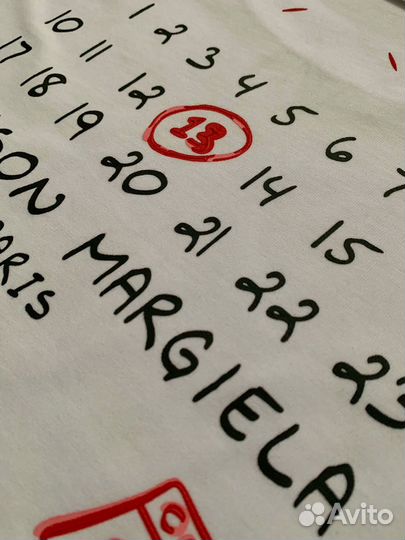 1 2 3 4 5 6 7
10 11 12 13 14 15
17 18 19 20 21 22 23
SON MARGIELA
ARIS
Avito